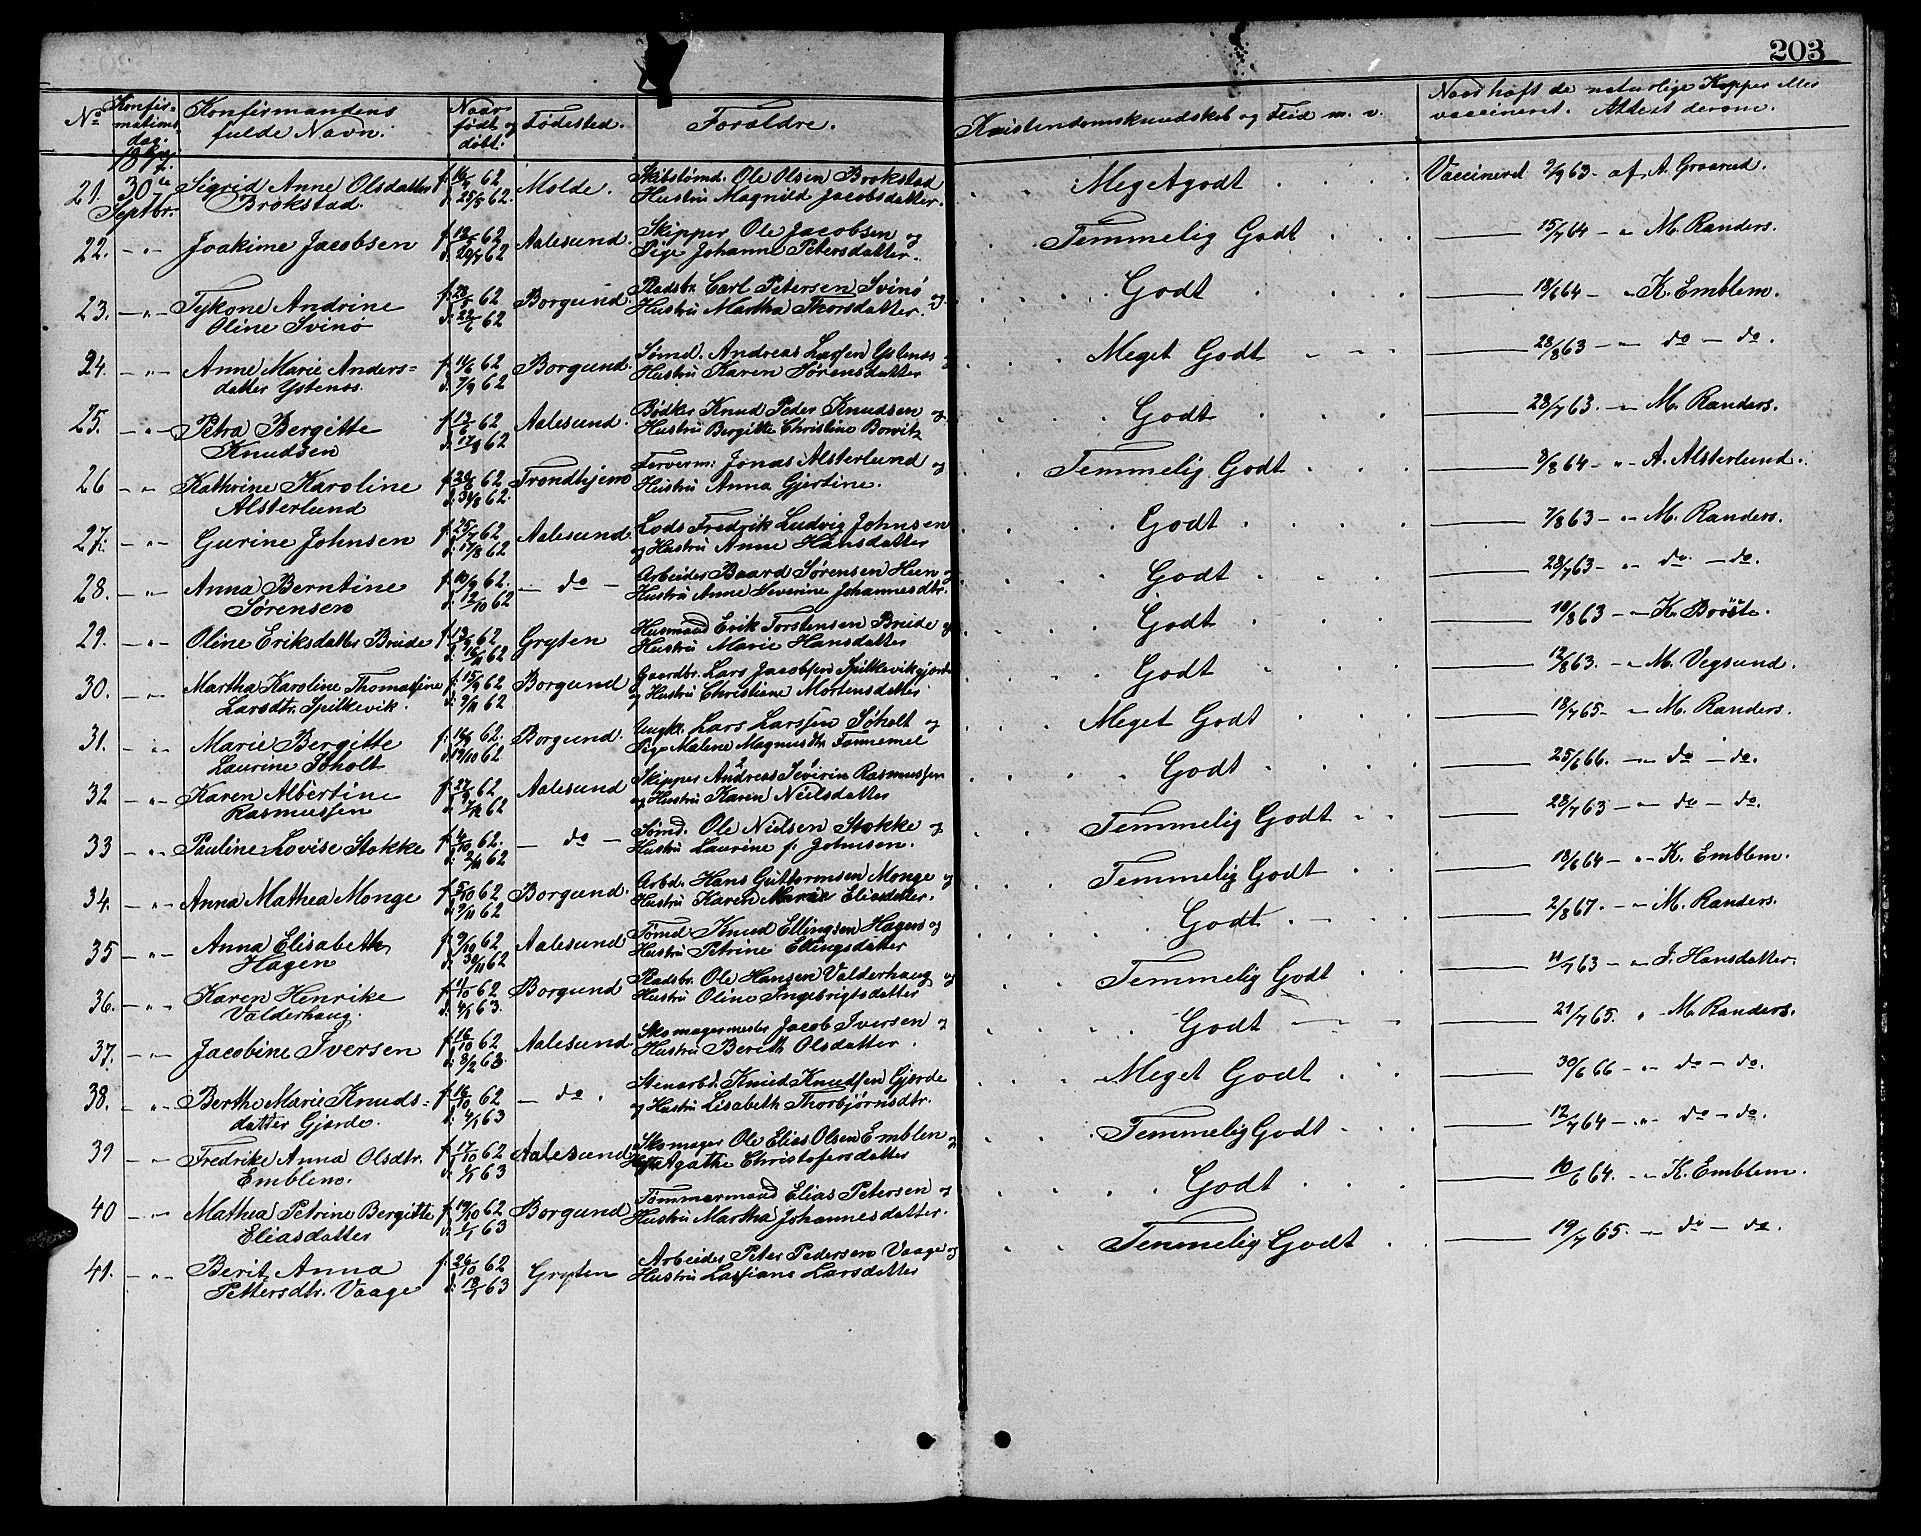 203
No Konfirmationsdag. 1877. Konfirmandens fulde Navn. Naar født og døbt. Fødested. Forældre. Kristendomskundskab og Flid m. v. Naar haft de naturlige Kopper eller vaccineret. Attest derom.
21. 30te Septbr. Sigrid Anne Olsdatter Brokstad f. 62 d. 25/5 62. Molde. Skibstømd. Ole Olsen Brokstad Hustru Magnild Jacobsdatter. Meget godt Vaccineret 2/9 63 af A. Graarud.
22. -"- Joakime Jacobsen f. 62 d. 20/7 62 Aalesund. Skipper Ole Jacobsen og Pige Johanne Petersdatter. Temmelig Godt 15/7 64 - " M. Randers.
23. -"- Tykone Andrine Oline Svinø f. 62 d. 22/6 62 Borgund. Pladsbr. Carl Petersen Svinø og Hustru Martha Thorsdatter. Godt 18/6 64 - " K. Emblem.
24. -"- Anne Marie Andersdatter Ystenes f. 11/6 62 d. 7/9 62 Borgund. Tømd. Andreas Larsen Ystenes og Hustru Karen Sørensdatter Meget Godt 28/8 63 - " do - do.
25. -"- Petra Bergitte Knudsen f. 62 d. 17/8 62 Aalesund. Bødker Knud Peder Knudsen og Hustru Bergitte Christine Borvitz Godt 28/7 63. - " M. Randers.
26 -"- Kathrine Karoline Alsterlund f. 62 d. 31/8 62. Trondhjem Farverm: Jonas Alsterlund og Hustru Anna Gjertine. Temmelig Godt 8/8 64 - " A. Alsterlund.
27. -"- Gurine Johnsen f. 25/7 62 d. 17/8 62 Aalesund. Lods Fredrik Ludvig Johnsen og Hustru Anne Hansdatter Godt 7/8 63 - " M. Randers.
28. -"- Anna Berntine Sørensen f. 10/9 62. d. 12/10 62 - do - Arbeider Baard Sørensen Hein og Hustru Anne Severine Johannesdtr. Godt 28/7 63 - " do. - do.
29. -"- Oline Eriksdatter Brude f. 62 d. 62 Gryten Husmand Erik Torstensen Brude og Hustru Marie Hansdatter Godt 10/8 63 - " K. Brøste.
30. -"- Martha Karoline Thomassine Larsdtr. Spilkevik. f. 15/9 62 d. 9/11 62 Borgund Gaardbr. Lars Jacobsen Spilkevikgjerde og Hustru Christiane Mortensdatter Godt 12/8 63. - " M. Vegsund.
31. -"- Marie Bergitte Laurine Søholt f. 62. d. 19/10 62 Borgund. Ungk. Lars Larssen Søholt og Pige Malene Magnusdtr. Fannemel Meget Godt 18/7 65 - " M. Randers.
32 -"- Karen Albertine Rasmussen f. 62 d. 62 Aalesund Skipper Andreas Severin Rasmussen og Hustru Karen Nielsdatter Godt 25/6 66. - " do - do.
33 -"- Pauline Lovise Stokke f. 62. d. 2/11 62 - do - Tømd. Ole Nielsen Stokke og Hustru Laurine f. Johnsen. Temmelig Godt 28/7 63 - " do - do.
34. -"- Anna Mathea Monge f. 5/10 62 d. 9/11 62 Borgund. Arbd. Hans Guttormsen Monge og Hustru Karen Marie Eliasdatter. Temmelig Godt 18/6 64 - " K. Emblem.
35 -"- Anna Elisabeth Hagen f. 9/10 62 d. 30/11 62 Aalesund Tømd. Knud Ellingsen Hagen og Hustru Petrine Ellingsdatter Godt 2/8 67. - " M. Randers.
36. -"- Karen Henrike Valderhaug. f. 62 d. 4/1 63. Borgund Pladsbr. Ole Hansen Valderhaug og Hustru Oline Ingebrigtsdatter Temmelig Godt 11/7 63 - " J. Hansdatter.
37. -"- Jacobine Iversen f. 16/10 62 d. 8/2 63. Aalesund Skomagermester Jacob Iversen og Hustru Berith Olsdatter. Godt 21/7 65. " M. Randers.
38. -"- Berthe Marie Knudsdatter Gjerde. f. 16/10 62 d. 4/1 63 - do. Stenarbd. Knud Knudsen Gjerde og Hustru Lisabeth Thorbjørnsdtr. Meget Godt 30/6 66 - " do - do.
39 -"- Fredrike Anna Olsdtr. Emblem. f. 17/10 62 d. 1/1 63 Aalesund Skomager Ole Elias Olsen Emblen og Hustr. Agathe Christofersdatter Temmelig Godt 12/7 64 - " do - do.
40 -"- Mathea Petrine Bergitte Eliasdatter f. 19/10 62 d. 1/1 63 Borgund Tømmermand Elias Petersen og Hustru Martha Johannesdatter. Godt 10/6 64. - " K. Emblem.
41. -"- Berit Anna Pettersdtr. Vaage f. 26/10 62 d. 18/1 63 Gryten Arbeider Peter Pedersen Vaage og Hustru Lassiane Larsdatter Temmelig Godt 19/7 65. - " do - do.